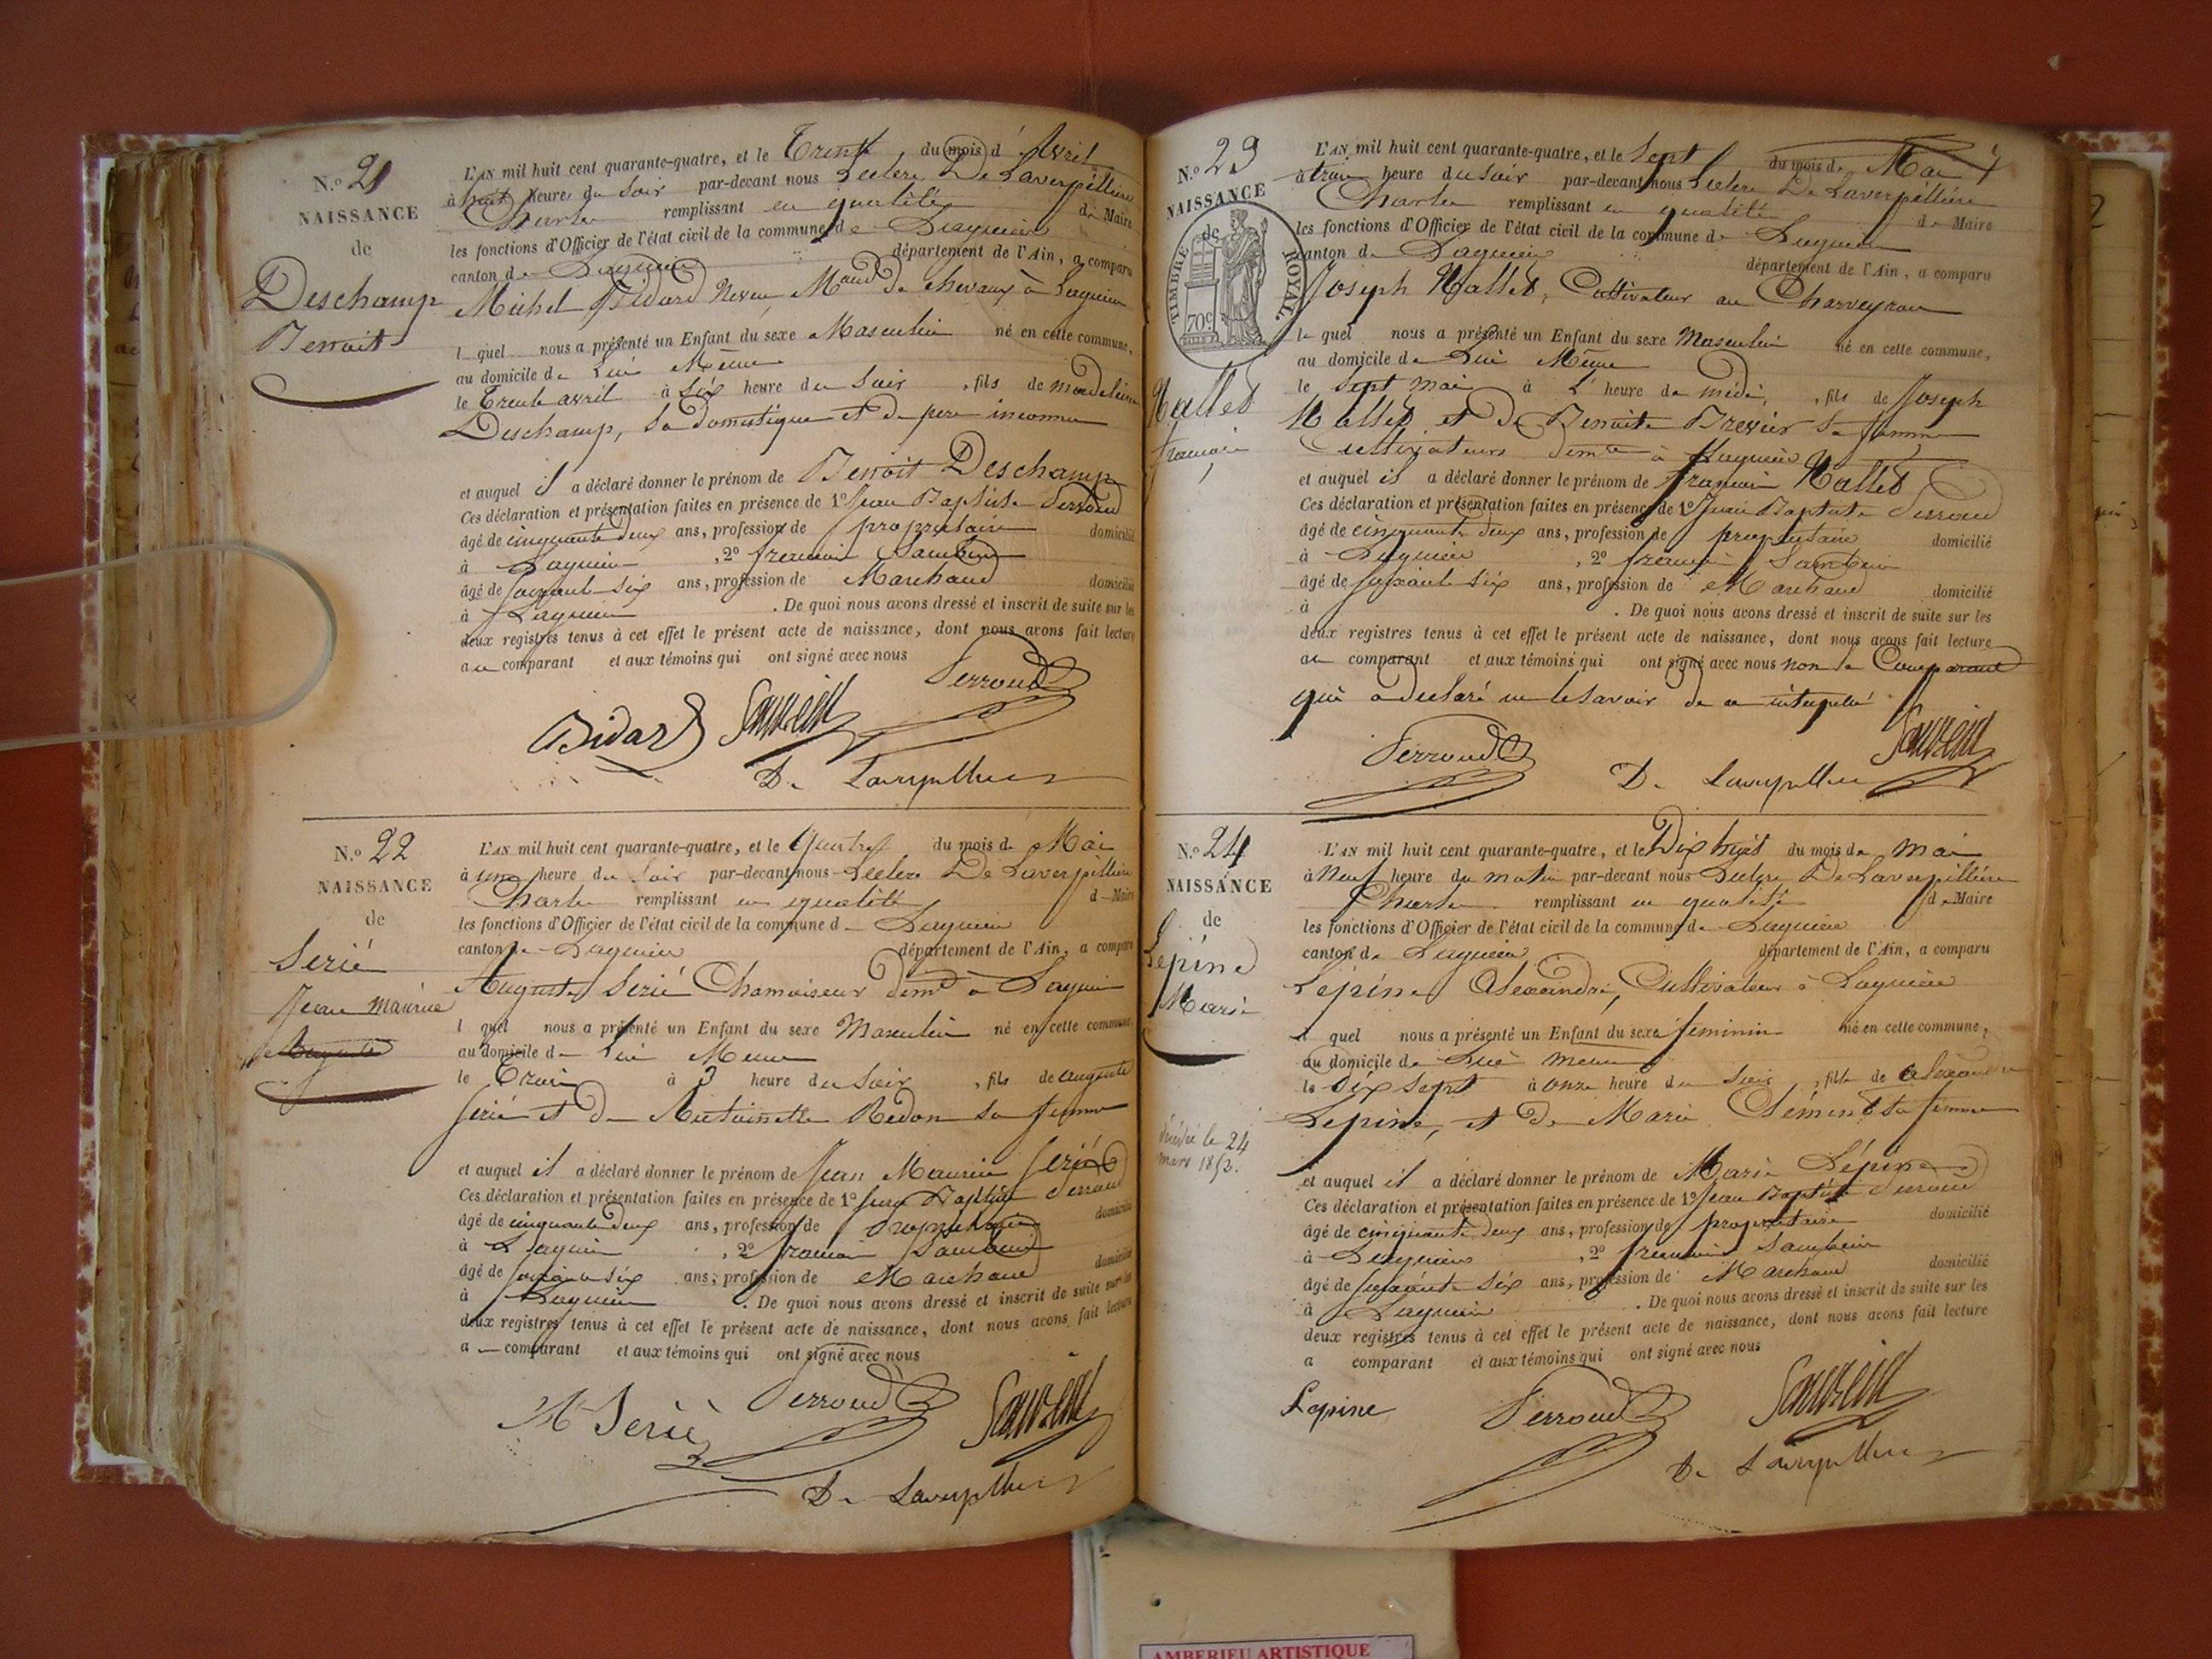 N.º 21
NAISSANCE
de
Deschamp
Benoit
L'AN mil huit cent quarante-quatre, et le Trente du mois d'Avril
à huit heure du Soir par-devant nous Leclerc De Laverpillière
Charles remplissant en qualité de Maire
les fonctions d'Officier de l'état civil de la commune de Lagnieu
canton de Lagnieu département de l'Ain, a comparu
Michel Bidard Neveu Mand de chevaux à Lagnieu
l quel nous a présenté un Enfant du sexe Masculin né en cette commune,
au domicile de Lui Même
le Trente avril à Six heure du Soir, fils de madeleine
Deschamp, Sa domestique et de père inconnu
et auquel il a déclaré donner le prénom de Benoit Deschamp
Ces déclaration et présentation faites en présence de 1º Jean Baptiste Perroud
âgé de cinquante deux ans, profession de propriétaire domicilié
à Lagnieu, 2º françois Sauzein
âgé de soixante six ans, profession de Marchand domicilié
à Lagnieu. De quoi nous avons dressé et inscrit de suite sur les
deux registres tenus à cet effet le présent acte de naissance, dont nous avons fait lecture
au comparant et aux témoins qui ont signé avec nous
Perroud
Bidard Sauzein
De Laverpillière
N.º 22
NAISSANCE
de
Serié
Jean maurice
Auguste
L'AN mil huit cent quarante-quatre, et le Quatre du mois de Mai
à une heure du Soir par-devant nous Leclerc De Laverpillière
Charles remplissant en qualité d Maire
les fonctions d'Officier de l'état civil de la commune d Lagnieu
canton de Lagnieu département de l'Ain, a comparu
Auguste Serié Chamoiseur demt à Lagnieu
l quel nous a présenté un Enfant du sexe Masculin né en cette commune
au domicile d Lui Meme
le Trois à 3 heure du Soir, fils de auguste
Serié et d Antoinette Redon sa femme
et auquel il a déclaré donner le prénom de Jean Maurice Serié
Ces déclaration et présentation faites en présence de 1º Jean Baptiste Perroud
âgé de cinquante deux ans, profession de propriétaire domicilié
à Lagnieu, 2º françois Sauzein
âgé de soixante six ans, profession de Marchand domicilié
à Lagnieu. De quoi nous avons dressé et inscrit de suite sur les
deux registres tenus à cet effet le présent acte de naissance, dont nous avons fait lecture
a comparant et aux témoins qui ont signé avec nous
Mce Serié Perroud Sauzein
De Laverpillière
N.º 23
NAISSANCE
de
TIMBRE ROYAL
70c
Nallet
françois
L'AN mil huit cent quarante-quatre, et le Sept du mois de Mai
à trois heure du Soir par-devant nous Leclerc De Laverpillière
Charles remplissant en qualité de Maire
les fonctions d'Officier de l'état civil de la commune de Lagnieu
canton de Lagnieu département de l'Ain, a comparu
Joseph Nallet, Cultivateur au Charveyron
le quel nous a présenté un Enfant du sexe Masculin né en cette commune,
au domicile de Lui Même
le Sept mai à l'heure de midi, fils de Joseph
Nallet et de Benoite Brevier Sa femme
Cultivateurs demts à Lagnieu
et auquel il a déclaré donner le prénom de françois Nallet
Ces déclaration et présentation faites en présence de 1º Jean Baptiste Perroud
âgé de cinquante deux ans, profession de propriétaire domicilié
à Lagnieu, 2º françois Sauzein
âgé de soixante six ans, profession de Marchand domicilié
à . De quoi nous avons dressé et inscrit de suite sur les
deux registres tenus à cet effet le présent acte de naissance, dont nous avons fait lecture
au comparant et aux témoins qui ont signé avec nous non le Comparant
qui a déclaré ne le savoir de ce interpellé
Perroud Sauzein
De Laverpillière
N.º 24
NAISSANCE
de
Lépine
Marie
décédée le 24
mars 1852.
L'AN mil huit cent quarante-quatre, et le Dix huit du mois de mai
à Neuf heure du matin par-devant nous Leclerc De Laverpillière
Charles remplissant en qualité de Maire
les fonctions d'Officier de l'état civil de la commune de Lagnieu
canton de Lagnieu département de l'Ain, a comparu
Lépine Alexandre, Cultivateur à Lagnieu
l quel nous a présenté un Enfant du sexe feminin né en cette commune,
au domicile de Lui meme
le dix Sept à onze heure du Soir, fille de alexandre
Lepine, et de Marie Clément sa femme
et auquel il a déclaré donner le prénom de Marie Lépine
Ces déclaration et présentation faites en présence de 1º Jean Baptiste Perroud
âgé de cinquante deux ans, profession de propriétaire domicilié
à Lagnieu, 2º françois Sauzein
âgé de soixante six ans, profession de Marchand domicilié
à Lagnieu. De quoi nous avons dressé et inscrit de suite sur les
deux registres tenus à cet effet le présent acte de naissance, dont nous avons fait lecture
a comparant et aux témoins qui ont signé avec nous
Lepine Perroud Sauzein
De Laverpillière
AMBERIEU ARTISTIQUE